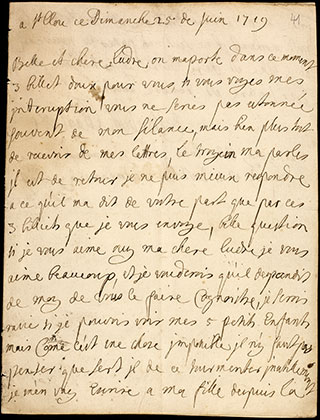 a St Clou ce Dimanche 25 de juin 1719
Belle et chere Ludre, on m'aporte dans ce moment
3 billet doux pour vous, si vous voyes mes
jnteruption vous ne series pas estonnée
souvent de mon silance, mais bien plus tost
de recevoir de mes lettres, le m'a parlés
il est de retour je ne puis mieux respondre
a ce qu'il ma dit de vostre part que par ces
3 billets que je vous envoye, belle question
si je vous aime ouy ma chere Ludre je vous
aime beaucoup et je voudrois qu'il dependit
de moy de vous le faire cognoistre, je serois
ravie si je pouvois voir mes 5 petits enfants
mais come c'est une chose imposible il n'y faut pas
penser que sert il de ce tourmenter
je m'en vay escrire a ma fille depuis la